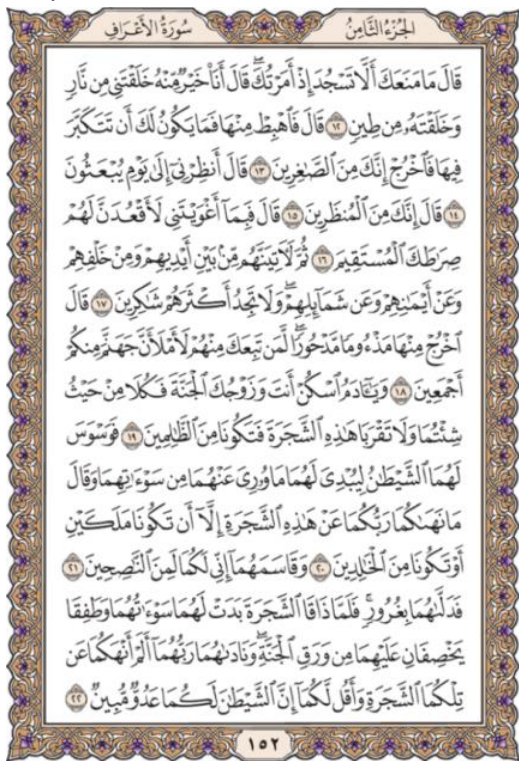 الجُزْءُ الثَّامِنُ سُورَةُ الأَعْرَافِ
قَالَ مَا مَنَعَكَ أَلَّا تَسْجُدَ إِذْ أَمَرْتُكَۖ قَالَ أَنَا۠ خَيْرٌ مِّنْهُ خَلَقْتَنِي مِن نَّارٍ
وَخَلَقْتَهُۥ مِن طِينٍ ١٢ قَالَ فَٱهْبِطْ مِنْهَا فَمَا يَكُونُ لَكَ أَن تَتَكَبَّرَ
فِيهَا فَٱخْرُجْ إِنَّكَ مِنَ ٱلصَّٰغِرِينَ ١٣ قَالَ أَنظِرْنِيٓ إِلَىٰ يَوْمِ يُبْعَثُونَ
١٤ قَالَ إِنَّكَ مِنَ ٱلْمُنظَرِينَ ١٥ قَالَ فَبِمَآ أَغْوَيْتَنِي لَأَقْعُدَنَّ لَهُمْ
صِرَٰطَكَ ٱلْمُسْتَقِيمَ ١٦ ثُمَّ لَأٓتِيَنَّهُم مِّنۢ بَيْنِ أَيْدِيهِمْ وَمِنْ خَلْفِهِمْ
وَعَنْ أَيْمَٰنِهِمْ وَعَن شَمَآئِلِهِمْۖ وَلَا تَجِدُ أَكْثَرَهُمْ شَٰكِرِينَ ١٧ قَالَ
ٱخْرُجْ مِنْهَا مَذْءُومًا مَّدْحُورًاۖ لَّمَن تَبِعَكَ مِنْهُمْ لَأَمْلَأَنَّ جَهَنَّمَ مِنكُمْ
أَجْمَعِينَ ١٨ وَيَٰٓـَٔادَمُ ٱسْكُنْ أَنتَ وَزَوْجُكَ ٱلْجَنَّةَ فَكُلَا مِنْ حَيْثُ
شِئْتُمَا وَلَا تَقْرَبَا هَٰذِهِ ٱلشَّجَرَةَ فَتَكُونَا مِنَ ٱلظَّٰلِمِينَ ١٩ فَوَسْوَسَ
لَهُمَا ٱلشَّيْطَٰنُ لِيُبْدِيَ لَهُمَا مَا وُۥرِيَ عَنْهُمَا مِن سَوْءَٰتِهِمَا وَقَالَ
مَا نَهَىٰكُمَا رَبُّكُمَا عَنْ هَٰذِهِ ٱلشَّجَرَةِ إِلَّآ أَن تَكُونَا مَلَكَيْنِ
أَوْ تَكُونَا مِنَ ٱلْخَٰلِدِينَ ٢٠ وَقَاسَمَهُمَآ إِنِّي لَكُمَا لَمِنَ ٱلنَّٰصِحِينَ ٢١
فَدَلَّىٰهُمَا بِغُرُورٍۚ فَلَمَّا ذَاقَا ٱلشَّجَرَةَ بَدَتْ لَهُمَا سَوْءَٰتُهُمَا وَطَفِقَا
يَخْصِفَانِ عَلَيْهِمَا مِن وَرَقِ ٱلْجَنَّةِۖ وَنَادَىٰهُمَا رَبُّهُمَآ أَلَمْ أَنْهَكُمَا عَن
تِلْكُمَا ٱلشَّجَرَةِ وَأَقُل لَّكُمَآ إِنَّ ٱلشَّيْطَٰنَ لَكُمَا عَدُوٌّ مُّبِينٌ ٢٢
١٥٢